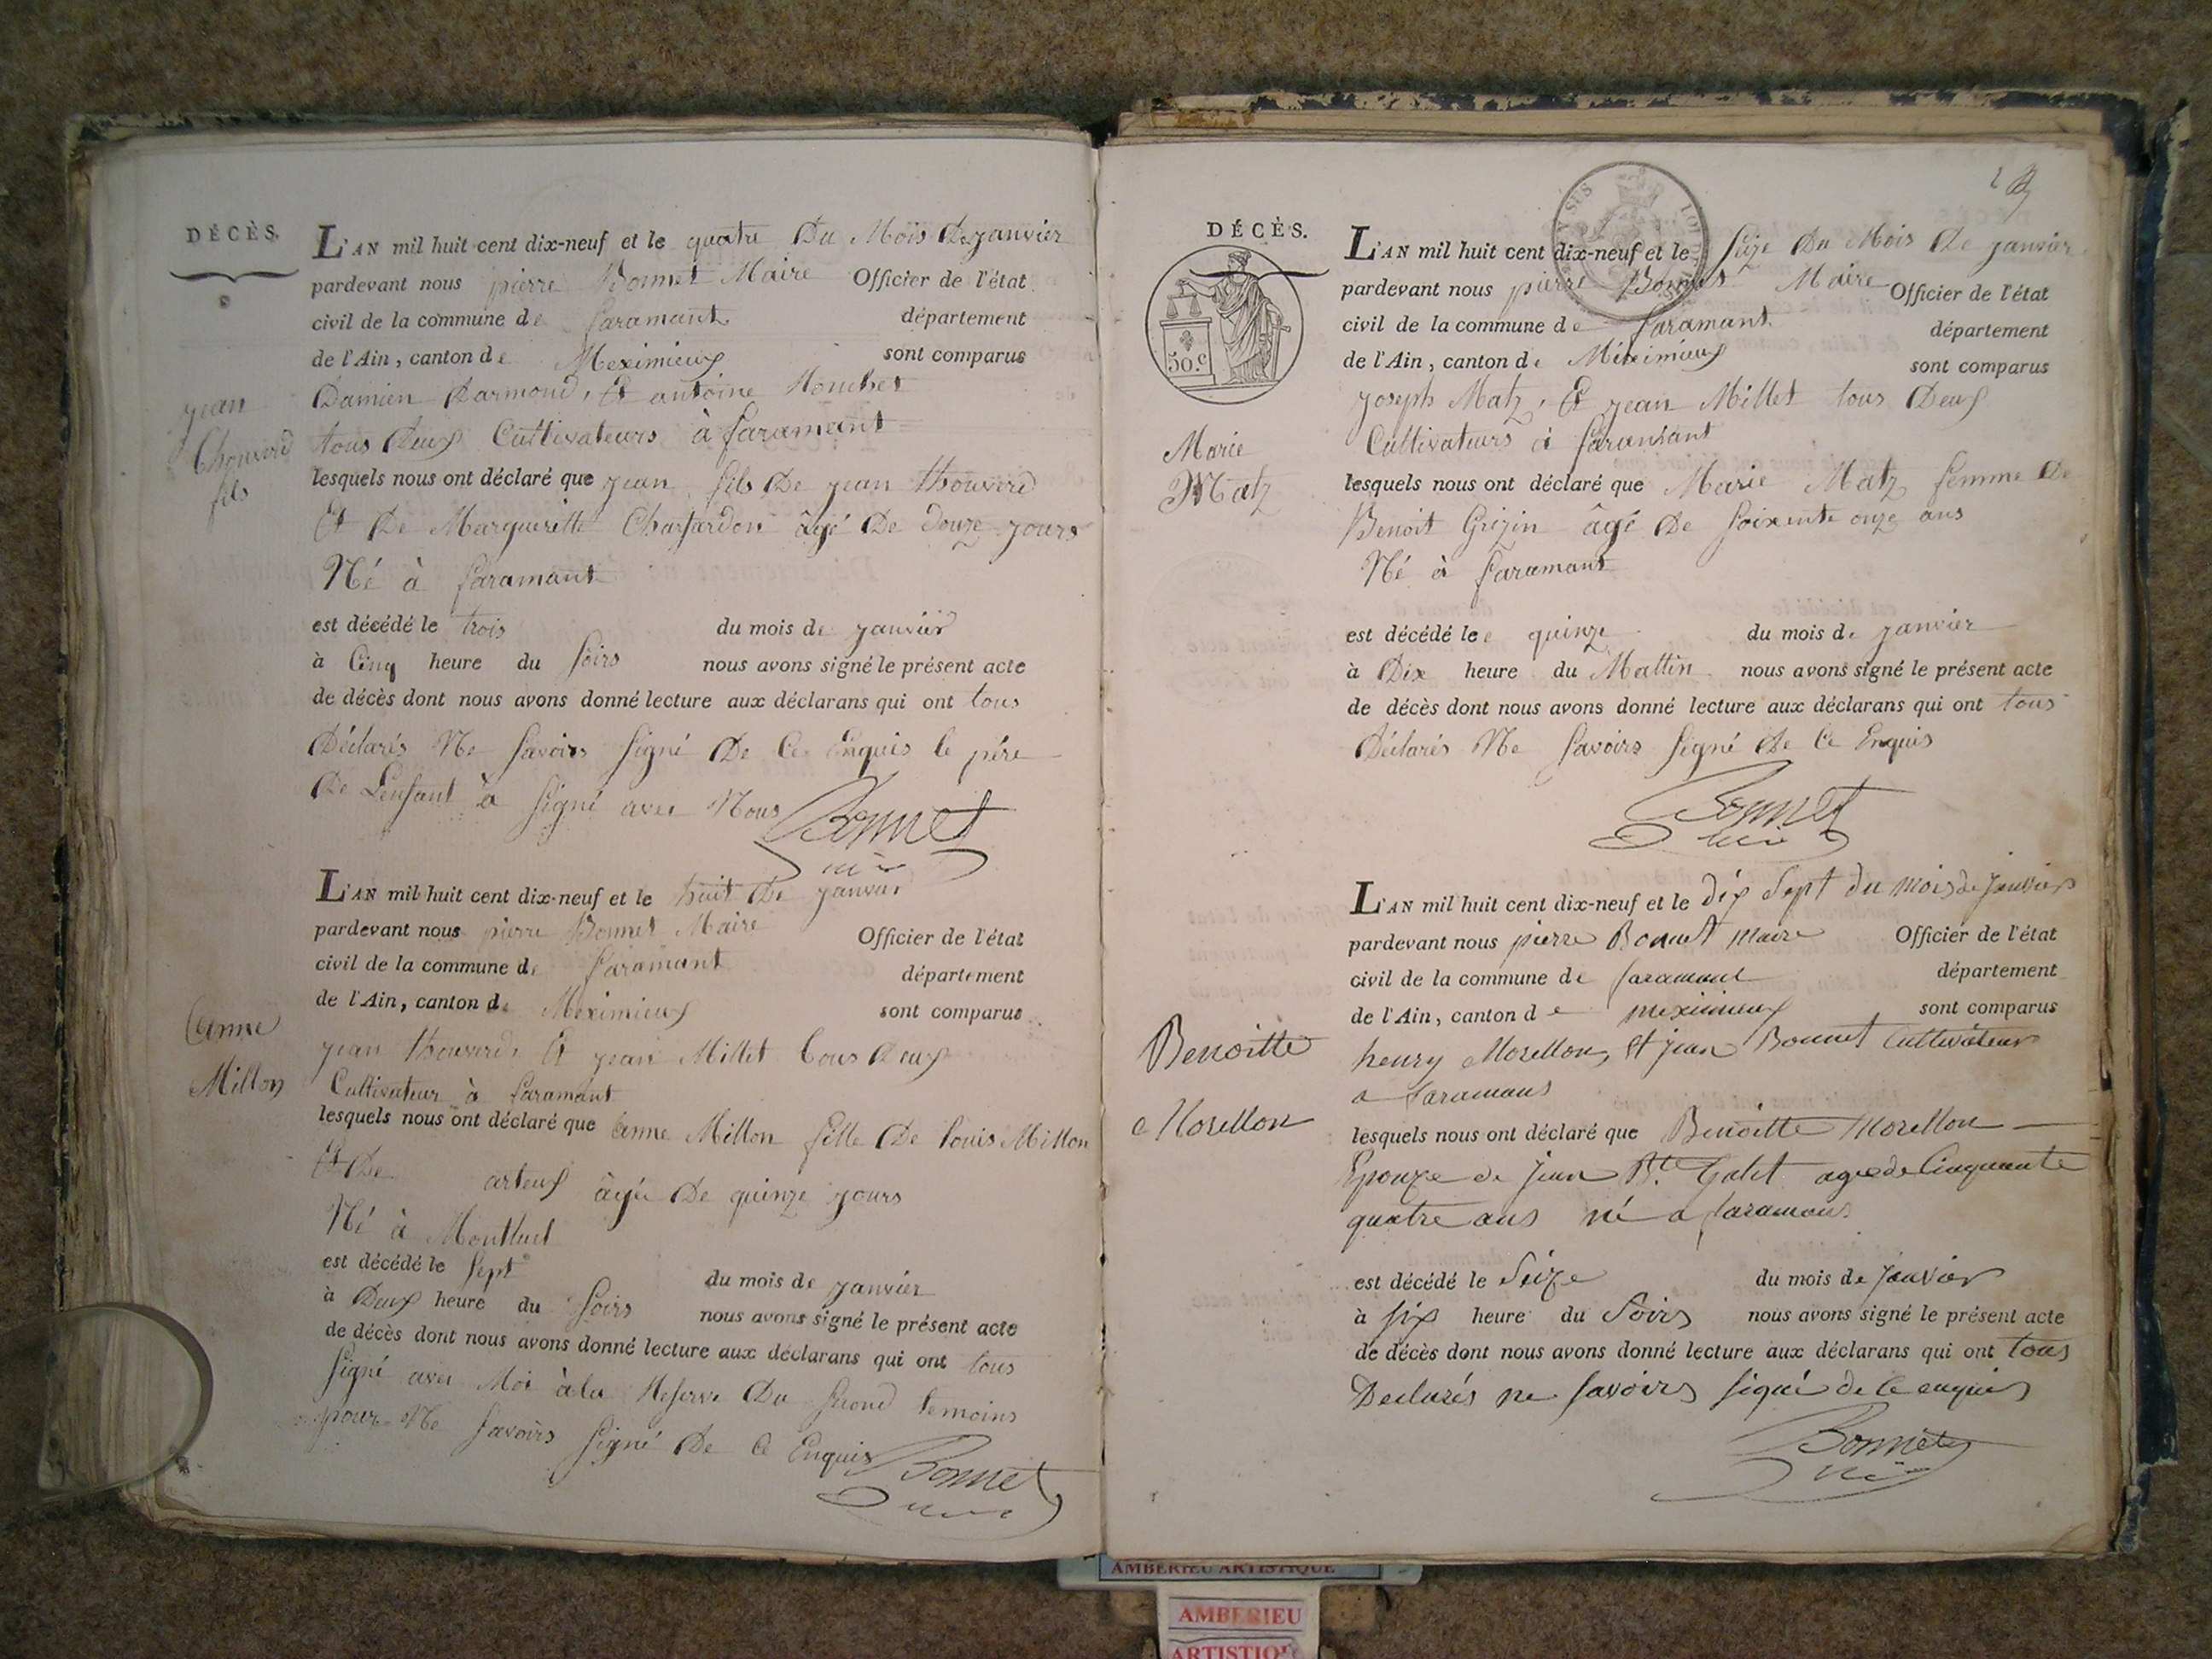 DÉCÈS.
L'AN mil huit cent dix-neuf et le quatre Du Mois De janvier
pardevant nous pierre Bonnet Maire Officier de l'état
civil de la commune de faramant département
de l'Ain, canton de Meximieux sont comparus
Damien Darmond, Et antoine
tous Deux Cultivateurs à faramant
jean
Thouverd
fils
lesquels nous ont déclaré que jean fils De jean thouverd
Et De Margueritte âgé De douze jours
Né à faramant
est décédé le trois du mois de janvier
à Cinq heure du soirs nous avons signé le présent acte
de décès dont nous avons donné lecture aux déclarans qui ont tous
Déclarés Ne savoirs signé De Ce Enquis le pére
De Lenfant à signé avec Nous Bonnet
L'AN mil huit cent dix-neuf et le huit De janvier
pardevant nous pierre Bonnet Maire Officier de l'état
civil de la commune de faramant département
de l'Ain, canton de Meximieux sont comparus
jean thouverd, Et jean Millet tous Deux
Cultivateur à faramant
anne
Millon
lesquels nous ont déclaré que anne Millon fille De louis Millon
Et De arteux âgée De quinze jours
Né à Montluel
est décédé le sept du mois de janvier
à Deux heure du soirs nous avons signé le présent acte
de décès dont nous avons donné lecture aux déclarans qui ont tous
signé avec Moi àla Reserve Du second temoins
pour Ne savoirs signé De Ce Enquis Bonnet
DÉCÈS.
50.c
L'AN mil huit cent dix-neuf et le seize Du Mois De janvier
pardevant nous pierre Bonnet Maire Officier de l'état
civil de la commune de faramant département
de l'Ain, canton de Meximieux sont comparus
joseph Matz, Et jean Millet tous Deux
Cultivateurs à faramant
Marie
Matz
lesquels nous ont déclaré que Marie Matz femme De
Benoit Grizin âgé De soixente onze ans
Né à faramant
est décédé le quinze du mois de janvier
à Dix heure du Mattin nous avons signé le présent acte
de décès dont nous avons donné lecture aux déclarans qui ont tous
Déclarés Ne savoirs signé De Ce Enquis
Bonnet
L'AN mil huit cent dix-neuf et le dix sept du mois de janvier
pardevant nous pierre Bonnet maire Officier de l'état
civil de la commune de faramant département
de l'Ain, canton de meximieux sont comparus
henry Morellon, Et jean Bonnet Cultivateur
a faramans
Benoitte
Morellon
lesquels nous ont déclaré que Benoitte Morellon
Epouze de jean Bte Galet agee de Cinquante
quatre ans né a faramans
est décédé le seize du mois de janvier
à six heure du soirs nous avons signé le présent acte
de décès dont nous avons donné lecture aux déclarans qui ont tous
Declarés ne savoirs signé de Ce enquis
Bonnet
AMBERIEU ARTISTIQUE
AMBERIEU
ARTISTIQUE